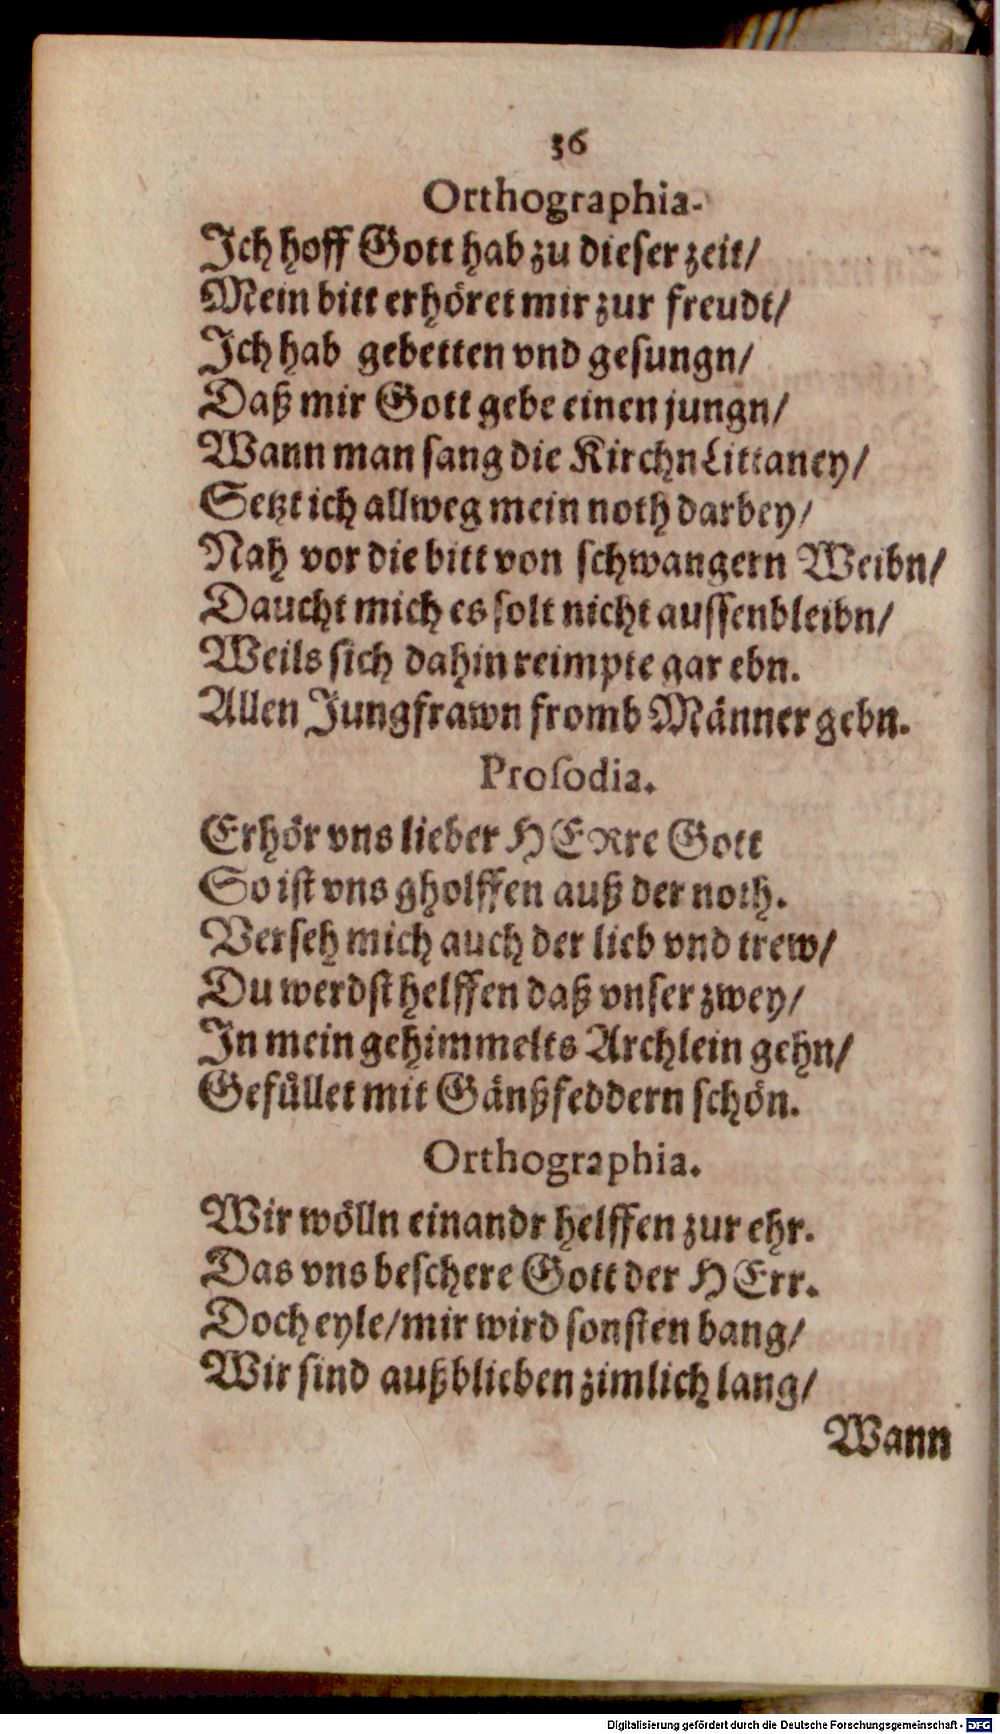 36
Orthographia.
Ich hoff Gott hab zu dieser zeit/
Mein bitt erhöret mir zur freudt/
Ich hab gebetten vnd gesungn/
Daß mir Gott gebe einen jungn/
Wann man sang die Kirchn Littaney/
Setzt ich allweg mein noth darbey/
Nah vor die bitt von schwangern Weibn/
Daucht mich es solt nicht aussenbleibn/
Weils sich dahin reimpte gar ebn.
Allen Jungfrawn fromb Männer gebn.
Prosodia.
Erhör vns lieber HERre Gott
So ist vns gholffen auß der noth.
Verseh mich auch der lieb vnd trew/
Du werdst helffen daß vnser zwey/
In mein gehimmelts Archlein gehn/
Gefüllet mit Gänßfeddern schön.
Orthographia.
Wir wölln einandr helffen zur ehr.
Das vns beschere Gott der HErr.
Doch eyle/mir wird sonsten bang/
Wir sind außblieben zimlich lang/
Wann
Digitalisierung gefördert durch die Deutsche Forschungsgemeinschaft - DFG